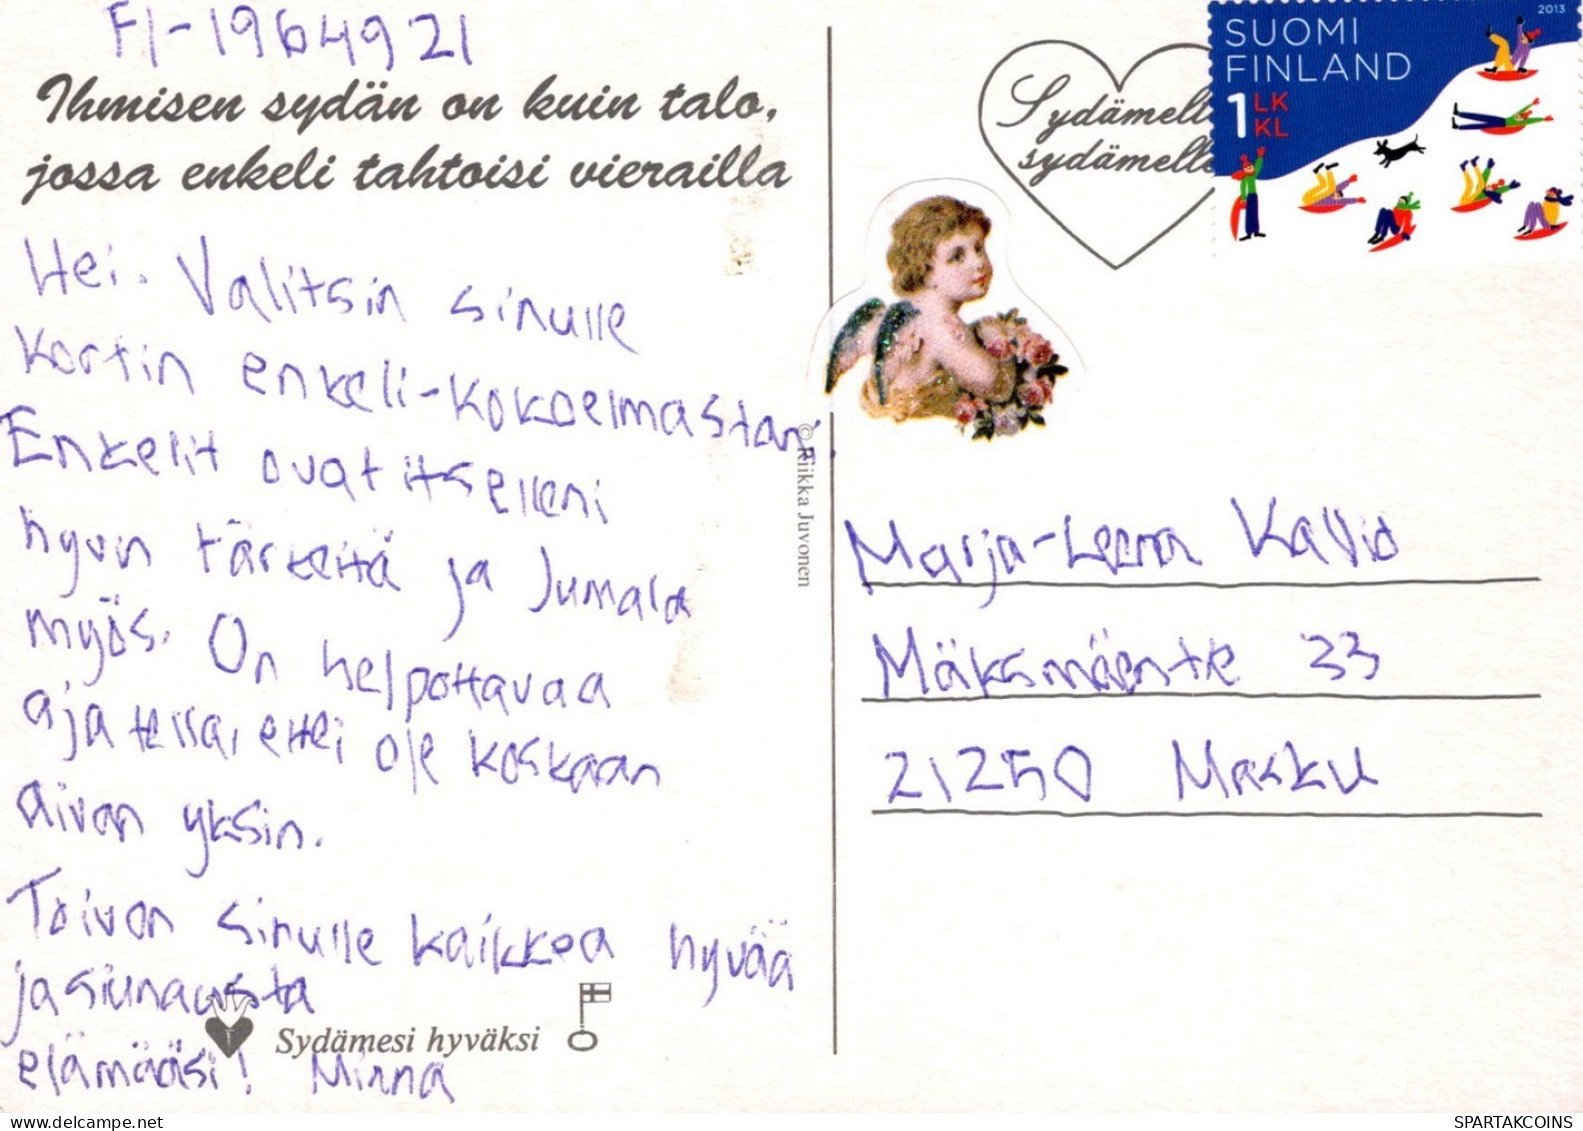 FI-1964921
Ihmisen sydän on kuin talo,
jossa enkeli tahtoisi vierailla
Hei. Valitsin sinulle
kortin enkeli-kokoelmastani.
Enkelit ovat itselleni
hyvin tärkeitä ja Jumala
myös. On helpottavaa
ajatella, ettei ole koskaan
aivan yksin.
Toivon sinulle kaikkea hyvää
ja siunausta
elämääsi! Minna
Sydämesi hyväksi
© Riikka Juvonen
Sydämell
sydämelle
2013
SUOMI
FINLAND
1 LK
KL
Marja-Leena Kallio
33
21250 Masku
SPARTAKCOINS